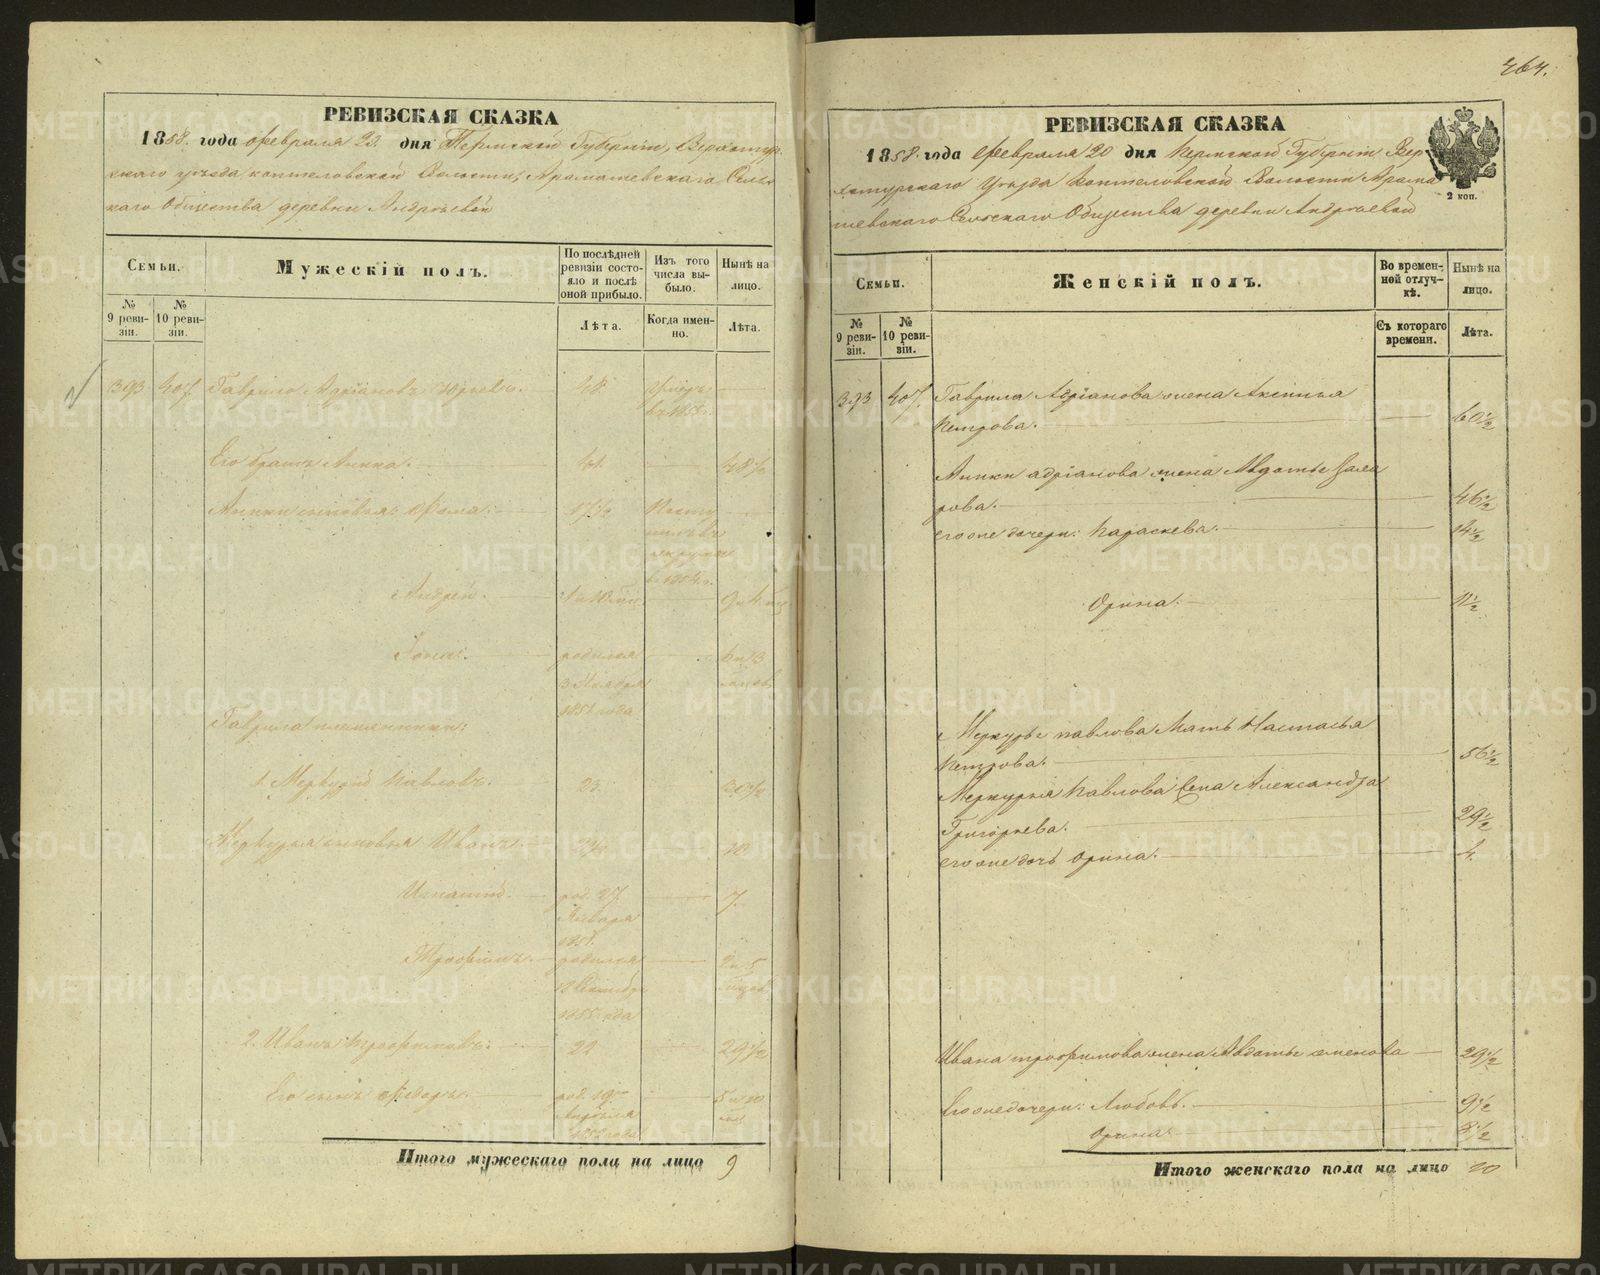 464.
РЕВИЗСКАЯ СКАЗКА
1858. года февраля 23. дня Пермской Губерніи, Верхотур-
скаго уѣзда коптеловской Волости, Арамашевскаго Сель-
каго Общества деревни Андреевой
Семьи.
Мужескій полъ.
По послѣдней ревизіи состо-
яло и послѣ оной прибыло.
Изъ того числа вы-
было.
Нынѣ на лицо.
№ 9 реви-
зіи.
№ 10 реви-
зіи.
Лѣта.
Когда имен-
но.
Лѣта.
393 407 Гаврило Адріановъ 48.
Его братъ Аника. 41. 48 1/2
Аники сыновья: Фома. 17 1/2
в 1854 г.
Андрей.
родился 6 и 3
3 Ноября
1851 года
Гаврила племянники:
1. Меркурій Павловъ. 23.
Меркурья сыновья Иванъ. 10
Игнатій. род. 27 7.
Января
1851.
Трофимъ. родился 2 и 5
1855 года
2. Иванъ Трофимовъ. 22 29 1/2
Его сынъ Федоръ. род. 19 5 и 10
Апрѣля
1852 года
Итого мужескаго пола на лицо 9
РЕВИЗСКАЯ СКАЗКА
1858. года Февраля 20 дня Пермской Губерніи Вер-
хотурскаго Уѣзда Коптеловской Волости Арама
шевскаго Сельскаго Общества деревни Андреевой
2 коп.
Семьи.
Женскій полъ.
Во времен-
ной отлуч-
кѣ.
Нынѣ на лицо.
№ 9 реви-
зіи.
№ 10 реви-
зіи.
Съ котораго времени.
Лѣта.
393 407. Гаврила Адріанова жена Аксинья
Петрова. 60 1/2
Аники адріанова жена Авдотья Заха
рова. 46 1/2
его же дочери: Параскева. 14 1/2
Орина. 11 1/2
Меркурья павлова Мать Настасья
Петрова. 56 1/2
Меркурья Павлова жена Александра
Григорьева. 29 1/2
его же дочь Орина. 4.
Ивана трофимова жена Авдотья семенова 29 1/2
Его же дочери: Любовь. 9 1/2
Орина. 3 1/2
Итого женскаго пола на лицо 10
METRIKI.GASO-URAL.RU